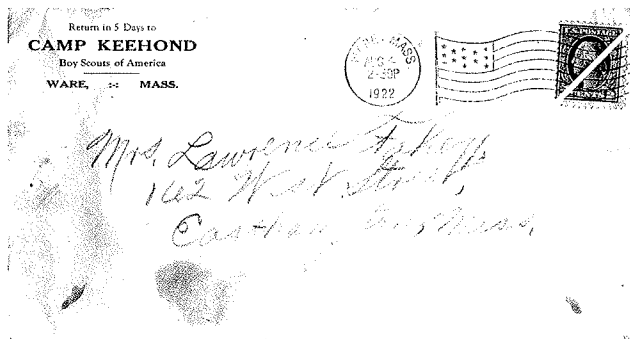 Return in 5 Days to
CAMP KEEHOND
Boy Scouts of America
WARE, :-: MASS.
WARE, MASS.
AUG
2-30P
1922
U.S. POSTAGE
Mrs. Lawrence
162 West Street,
Easthampton, Mass.